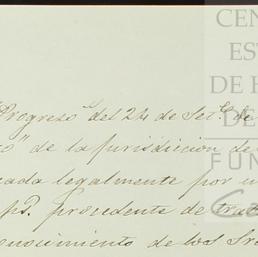 CEN
ES
DE H
DE
FUN
Progreso" del 24 de Set.e de
o" de la jurisdiccion de
cada legalmente por u
p.ª procedente de trat
conocimiento de los Sre